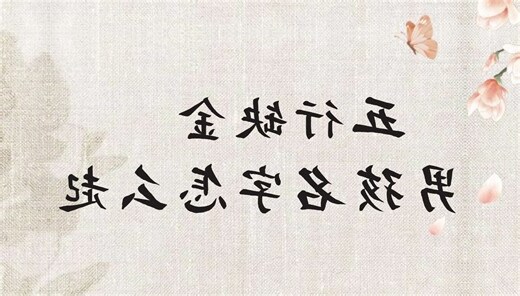 五行缺金
男孩名字怎么起